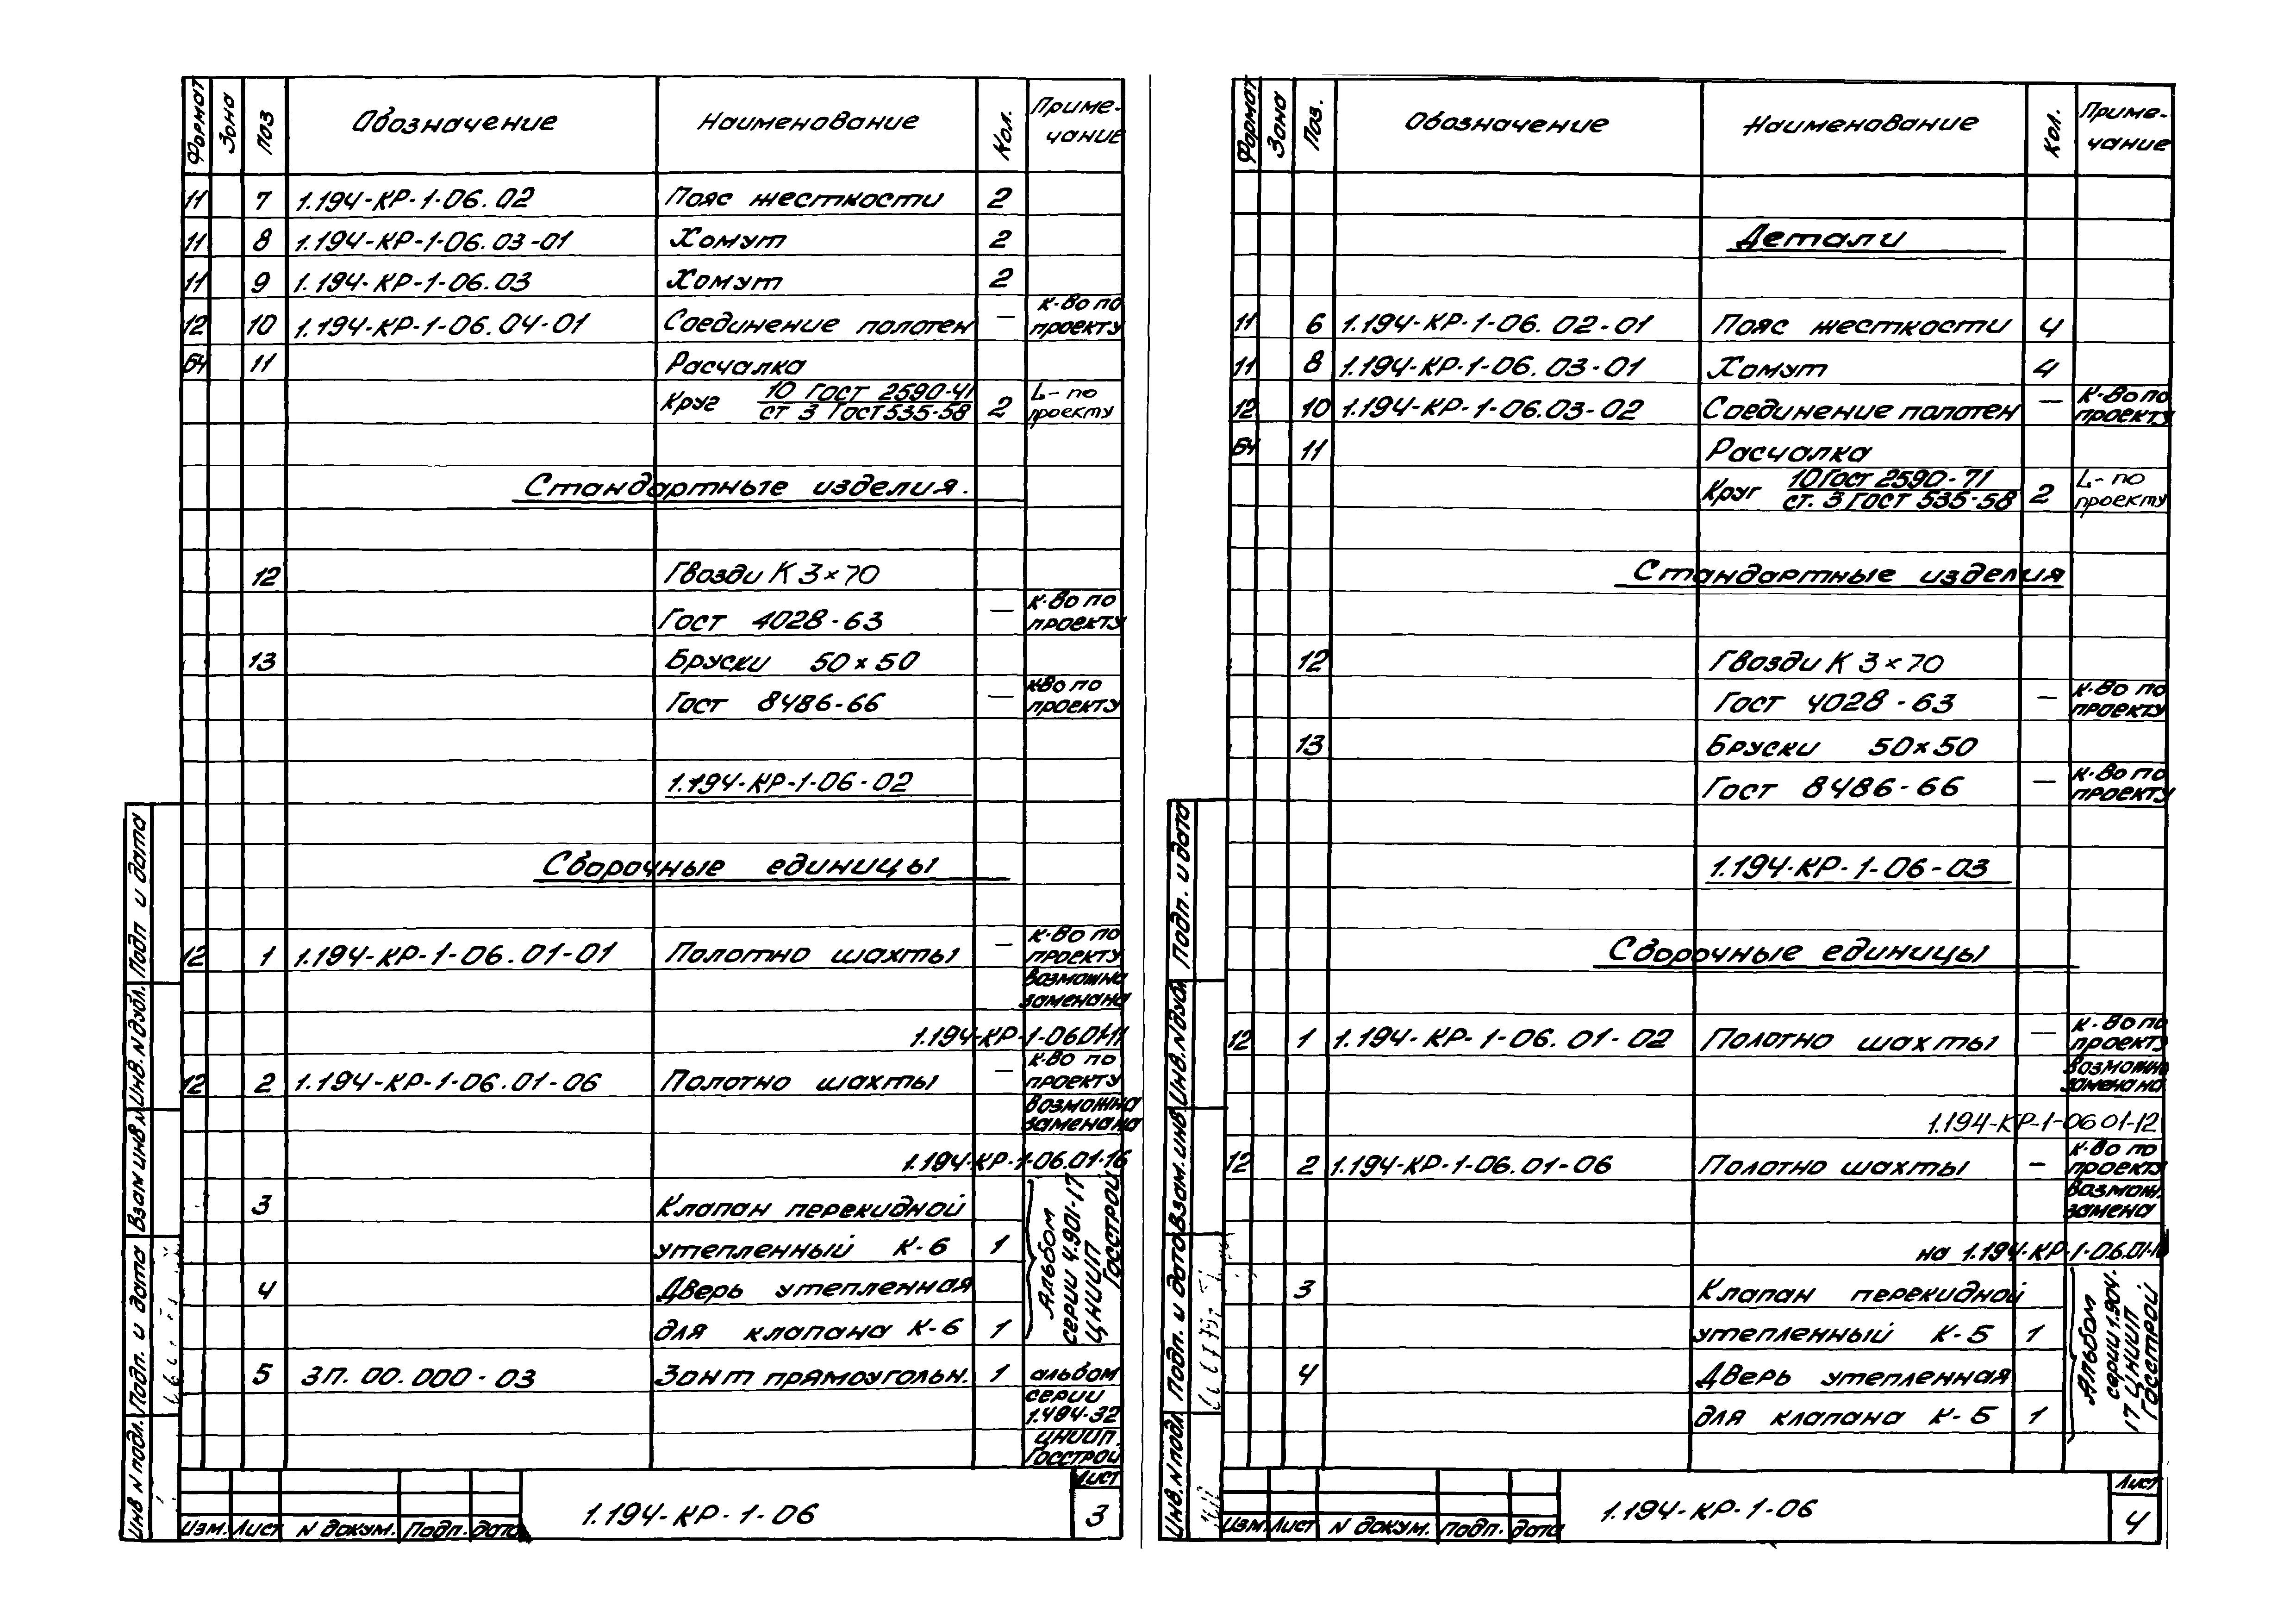 Формат Зона Поз Обозначение Наименование Кол. Приме-
чание
11 7 1.194-КР-1-06.02 Пояс жесткости 2
11 8 1.194-КР-1-06.03-01 Хомут 2
11 9 1.194-КР-1-06.03 Хомут 2
к-во по
12 10 1.194-КР-1-06.04-01 Соединение полотен — проекту
БЧ 11 Расчалка
10 Гост 2590-41 L-по
Круг ст 3 Гост 535-58 2 проекту
Стандартные изделия.
12 Гвозди К 3×70
к-во по
Гост 4028-63 — проекту
13 Бруски 50×50
кво по
Гост 8486-66 — проекту
1.194-КР-1-06-02
Сборочные единицы
к-во по
12 1 1.194-КР-1-06.01-01 Полотно шахты — проекту
Возможна
замена на
1.194-КР-1-06.01-11
к-во по
12 2 1.194-КР-1-06.01-06 Полотно шахты — проекту
Возможна
замена на
1.194-КР-1-06.01-16
3 Клапан перекидной
утепленный К-6 1
4 Дверь утепленная
для клапана К-6 1
Альбом
серии 4.901-17
ЦНИИП
Госстрой
5 ЗП.00.000-03 Зонт прямоугольн. 1 альбом
серии
1.494-32
ЦНИИП
Госстрой
Инв N подл. Подп. и дата Взам инв N Инв. N дубл. Подп и дата
Изм. Лист N докум. Подп. дата
1.194-КР-1-06
Лист
3
Формат Зона Поз. Обозначение Наименование Кол. Приме-
чание
Детали
11 6 1.194-КР-1-06.02-01 Пояс жесткости 4
11 8 1.194-КР-1-06.03-01 Хомут 4
к-во по
12 10 1.194-КР-1-06.03-02 Соединение полотен — проекту
БЧ 11 Расчалка
10 Гост 2590-71 L-по
Круг ст. 3 Гост 535-58 2 проекту
Стандартные изделия
12 Гвозди К 3×70
к-во по
Гост 4028-63 — проекту
13 Бруски 50×50
к-во по
Гост 8486-66 — проекту
1.194-КР-1-06-03
Сборочные единицы
к-во по
12 1 1.194-КР-1-06.01-02 Полотно шахты — проекту
Возможна
замена на
1.194-КР-1-06 01-12
к-во по
12 2 1.194-КР-1-06.01-06 Полотно шахты — проекту
Возмож.
замена
на 1.194-КР-1-06.01-16
3 Клапан перекидной
утепленный К-5 1
4 Дверь утепленная
для клапана К-5 1
Альбом
серии 1.904-
17 ЦНИИП
Госстрой
Инв. N подл Подп. и дата Взам. инв. Инв. N дубл Подп. и дата
Изм. Лист N докум. подп. дата
1.194-КР-1-06
Лист
4